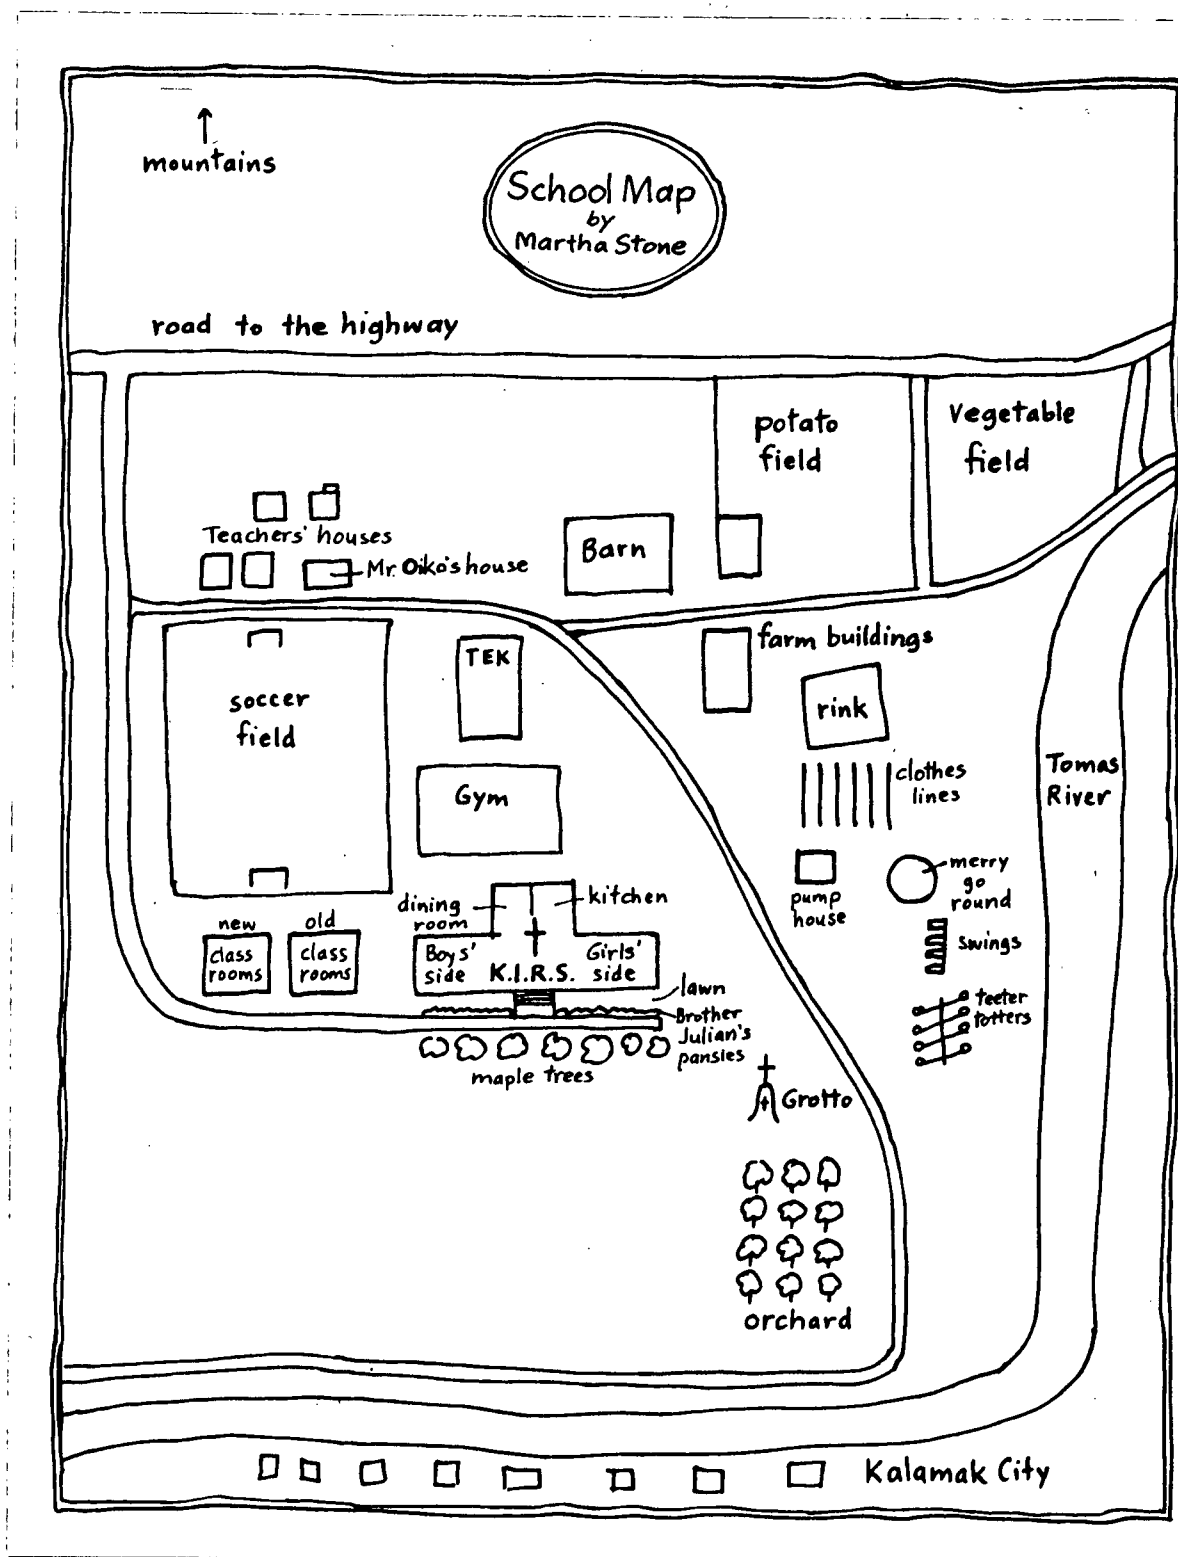 mountains
School Map
by
Martha Stone
road to the highway
potato
field
Vegetable
field
Teachers' houses
Mr. Oiko's house
Barn
farm buildings
TEK
soccer
field
rink
Gym
clothes
lines
Tomas
River
pump
house
merry
go
round
swings
teeter
totters
dining
room
kitchen
new
class
rooms
old
class
rooms
Boys'
side
K.I.R.S.
Girls'
side
lawn
Brother
Julian's
pansies
maple trees
Grotto
orchard
Kalamak City